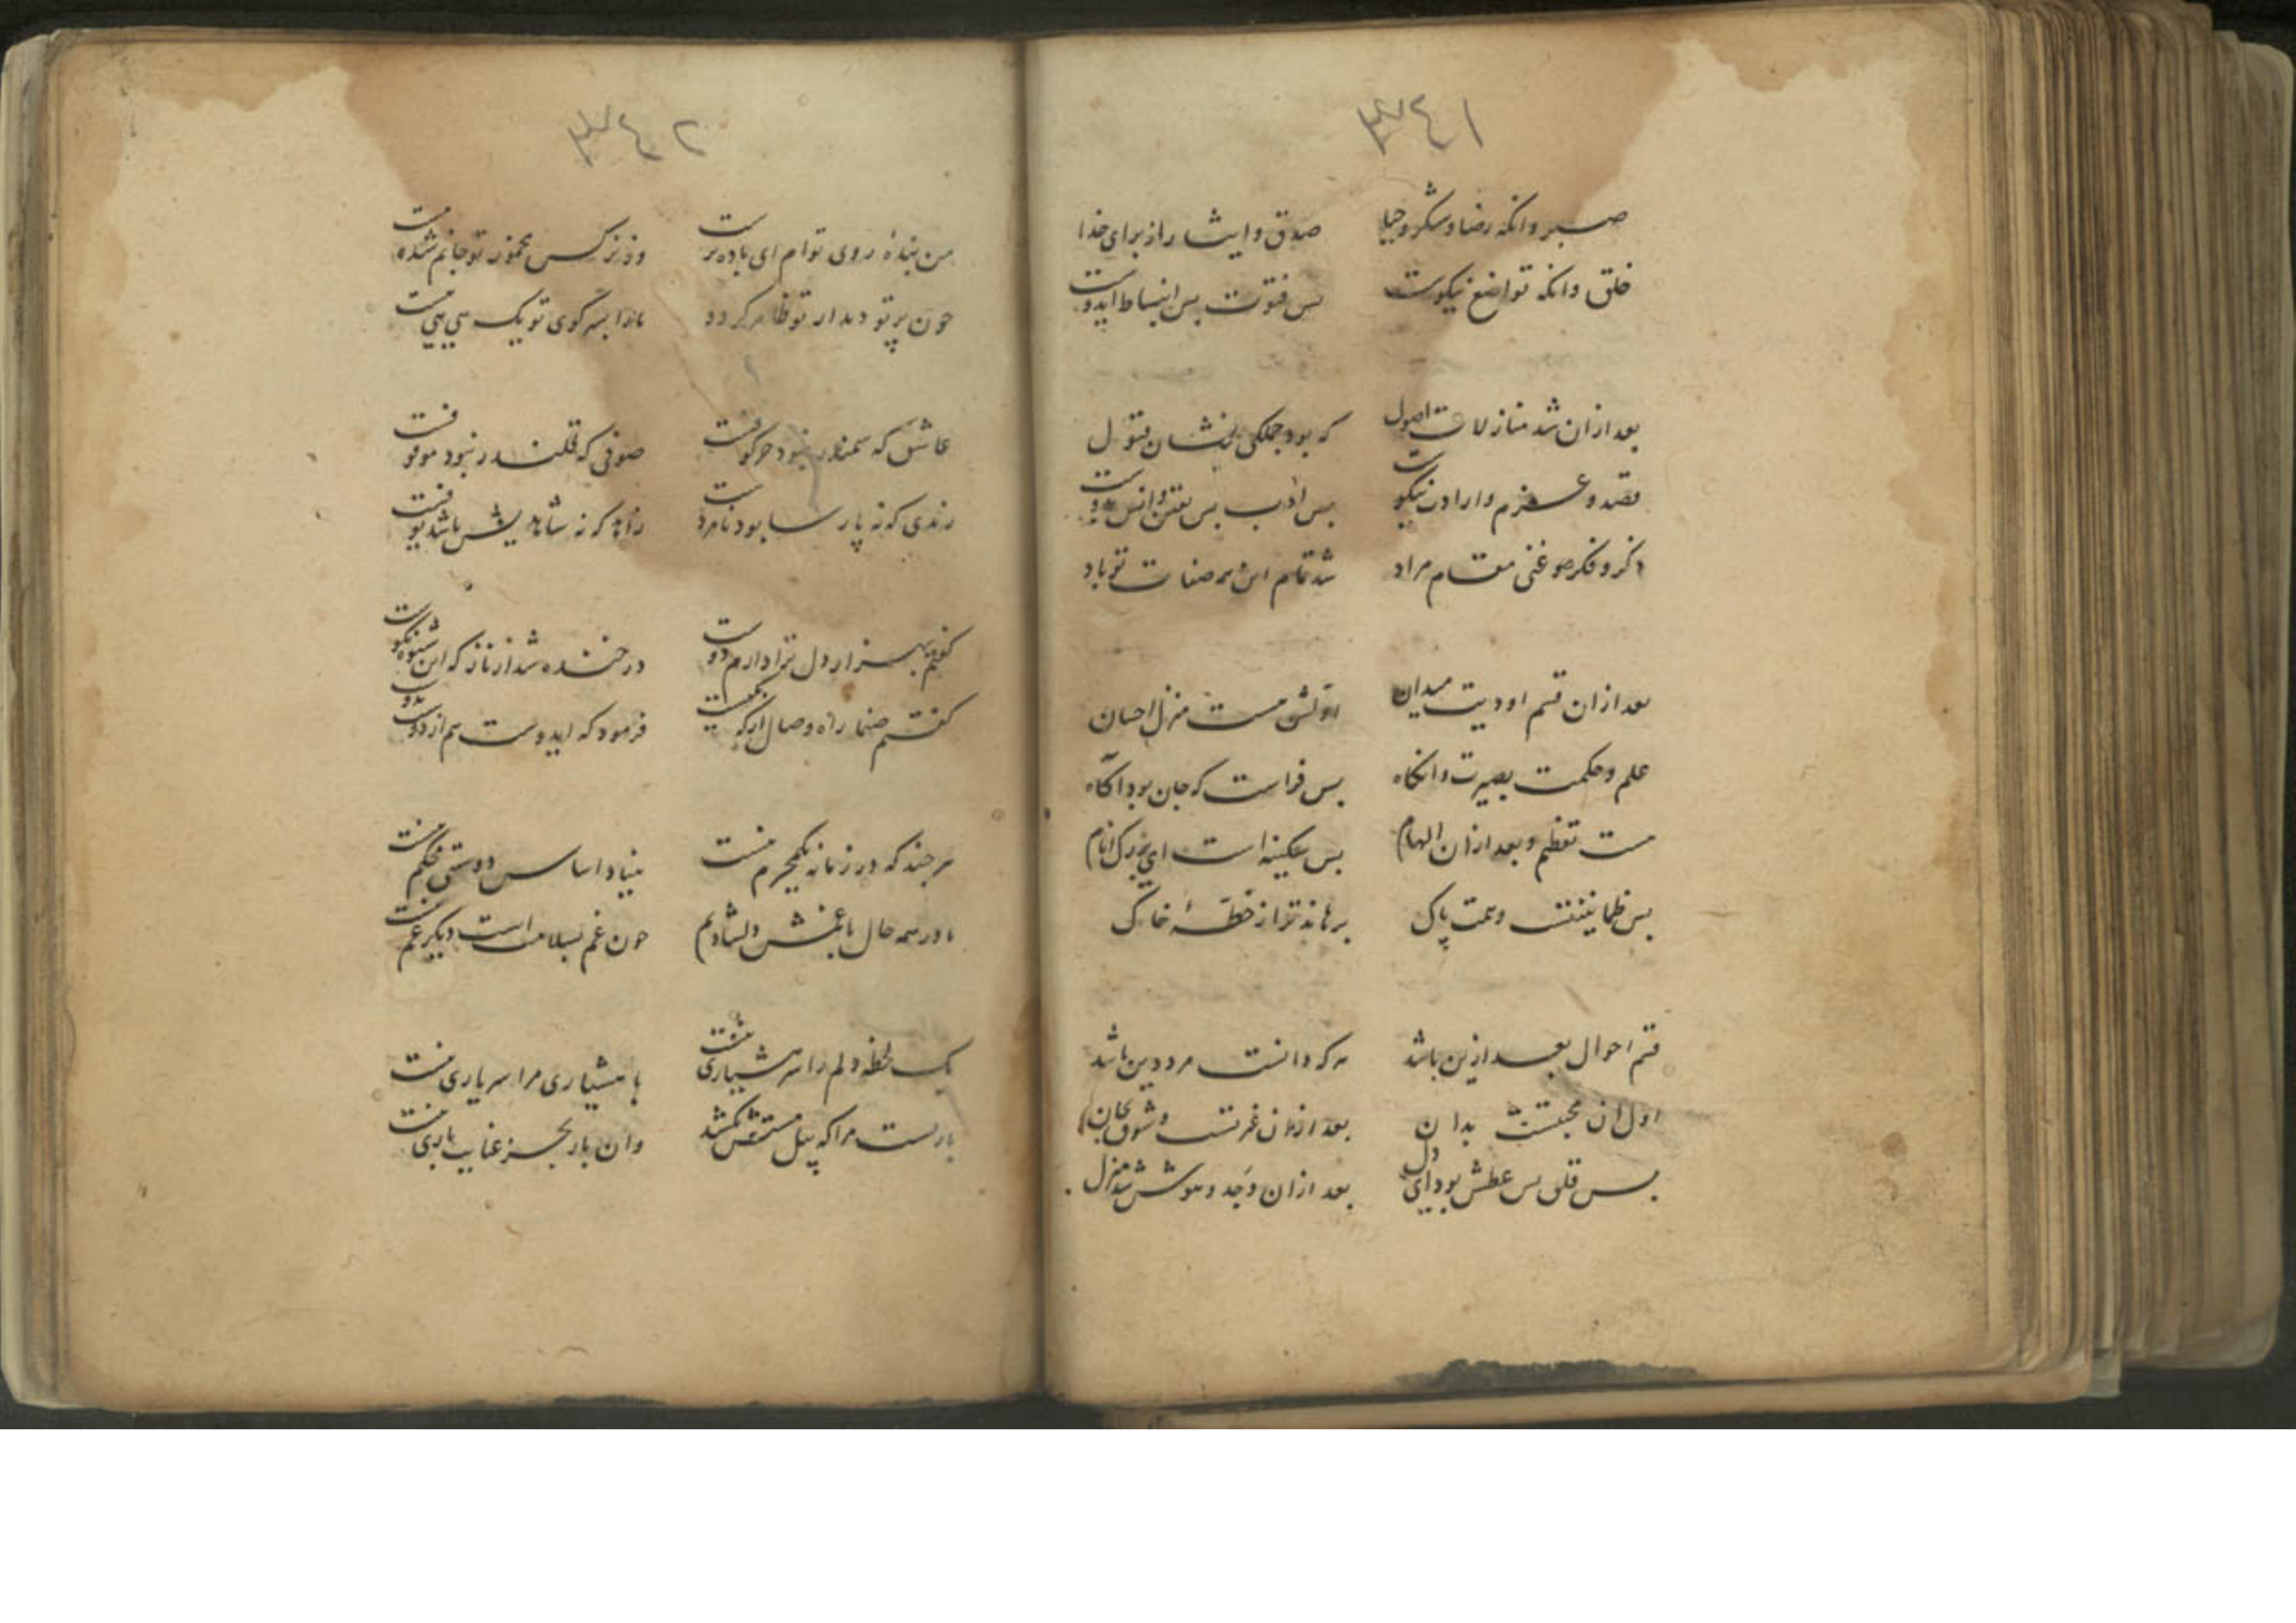 ٣٤١
صبر وانکه رضا و شکر و حیا
صدق و ایثار از برای خدا
خلق وانکه تواضع نیکوست
بس فتوت بس انبساط ایدوست
بعد ازان شد منازلات اصول
که بود جملکی نشان قبول
قصد و عزم و ارادت نیکوست
بس ادب بس یقین و انس بدوست
ذکر و فکر و غنی مقام مراد
شد تمام این همه صفات تو باد
بعد ازان قسم اودیت میدان
اولش هست منزل احسان
علم و حکمت بصیرت وانکاه
بس فراست که جان بود اکاه
هست تعظیم و بعد ازان الهام
بس سکینه است ای بزرک انام
بس طمانینتست و همت پاک
برهاند ترا از خطهٔ خاک
قسم احوال بعد ازین باشد
هر که دانست مرد دین باشد
اول ان محبتست بدان
بعد ازان غیرتست و شوق بجان
بس قلق بس عطش بود ای دل
بعد ازان وجد و هوش شد منزل
٣٤٢
من بندهٔ روی توام ای باده پرست
وز نرکس مخمور تو جانم شده مست
چون پرتو دیدار تو ظاهر کردد
مازا بسر کوی تو یک هی هی هست
عاشق که سمندر نبود حرکوفیست
صوفی که قلندر نبود موقوفیست
رندی که نه پارسا بود نامردست
زاهد که نه شاهدیش باشد یوفیست
کفتم بهزار دل ترا دارم دوست
در خنده شد از ناز که این شیوه نکوست
کفتم صنما راه وصال ارکه بکیست
فرمود که ایدوست هم از دوست بدوست
هر چند که در زمانه یک محرم نیست
بنیاد اساس دوستی محکم نیست
ما در همه حال با غمش دلشادیم
چون غم بسلامت است دیگر غم نیست
یک لحظه دلم را سر هشیاری نیست
با هشیاری مرا سر یاری نیست
باریست مرا که پیل مستش نکشد
وان بار بجز عنایت باری نیست